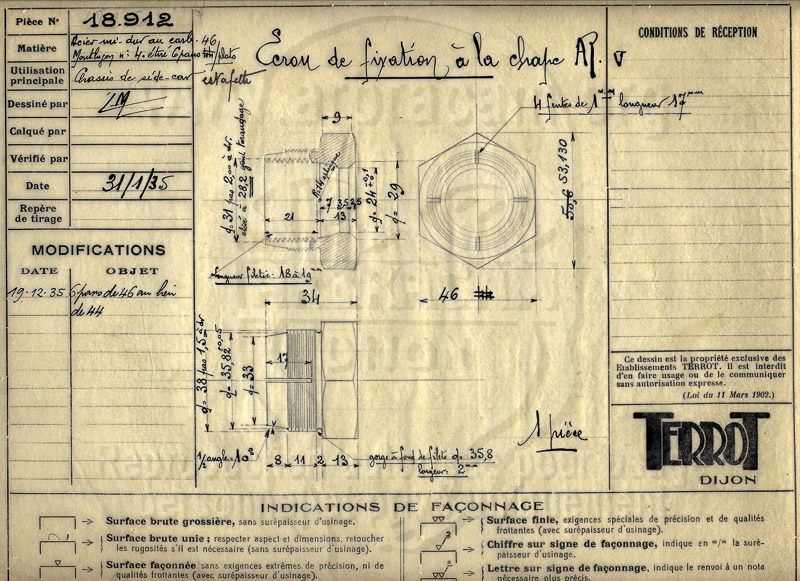 Pièce No 18.912
Matière Acier mi-dur au carb. 46
Montluçon n: 4. étiré 6 pans /plats
Utilisation principale Chassis de side-car estafette
Dessiné par LM
Calqué par
Vérifié par
Date 31/1/35
Repère de tirage
MODIFICATIONS
DATE OBJET
19-12-35 6 pans de 46 au lieu
de 44
Ecrou de fixation à la chape AR.
4 fentes de 1 mm longueur 17 mm
9
d= 31 pas 2,00 à dr.
alésé à 28,2 pour taraudage
21
7 3,5 3,5
13
d= 24 +0,1
+0
d= 29
Longueur filetée: 18 à 19
34
50,6 53,130
46
d= 38 pas 1,5 à dr
d= 35,82 ±0,05
d= 33
17
1/2 angle = 10°
8 11 2 13
gorge à fond de filets d= 35,8
largeur: 2 mm
1 pièce
CONDITIONS DE RÉCEPTION
Ce dessin est la propriété exclusive des
Etablissements TERROT. Il est interdit
d'en faire usage ou de le communiquer
sans autorisation expresse.
(Loi du 11 Mars 1902.)
TERROT
DIJON
INDICATIONS DE FAÇONNAGE
Surface brute grossière, sans surépaisseur d'usinage.
Surface brute unie; respecter aspect et dimensions, retoucher
les rugosités s'il est nécessaire (sans surépaisseur d'usinage).
Surface façonnée sans exigences extrêmes de précision, ni de
qualités frottantes (avec surépaisseur d'usinage).
Surface finie, exigences spéciales de précision et de qualités
frottantes (avec surépaisseur d'usinage).
Chiffre sur signe de façonnage, indique en m/m la suré-
paisseur d'usinage.
Lettre sur signe de façonnage, indique le renvoi à un nota
nécessaire plus précis.